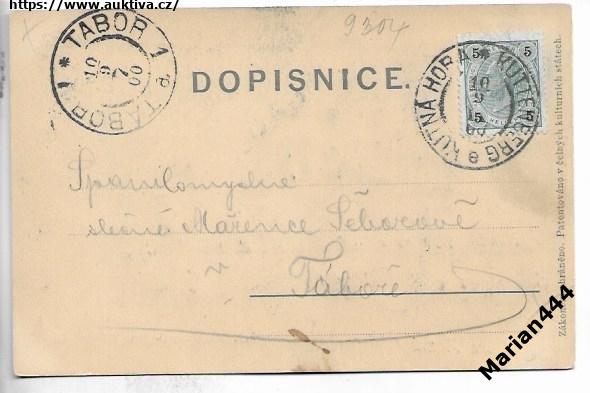 https://www.auktiva.cz/
9304
* TÁBOR 1 * TÁBOR 1 d.
10
9
7
00
DOPISNICE.
KUTNÁ HORA * KUTTENBERG e
10
9
00
5 5
5 5
Spanilomyslné
slečně Mařence Šeborově
v
Táboře
Patentováno v čelných kulturních státech.
Marian444